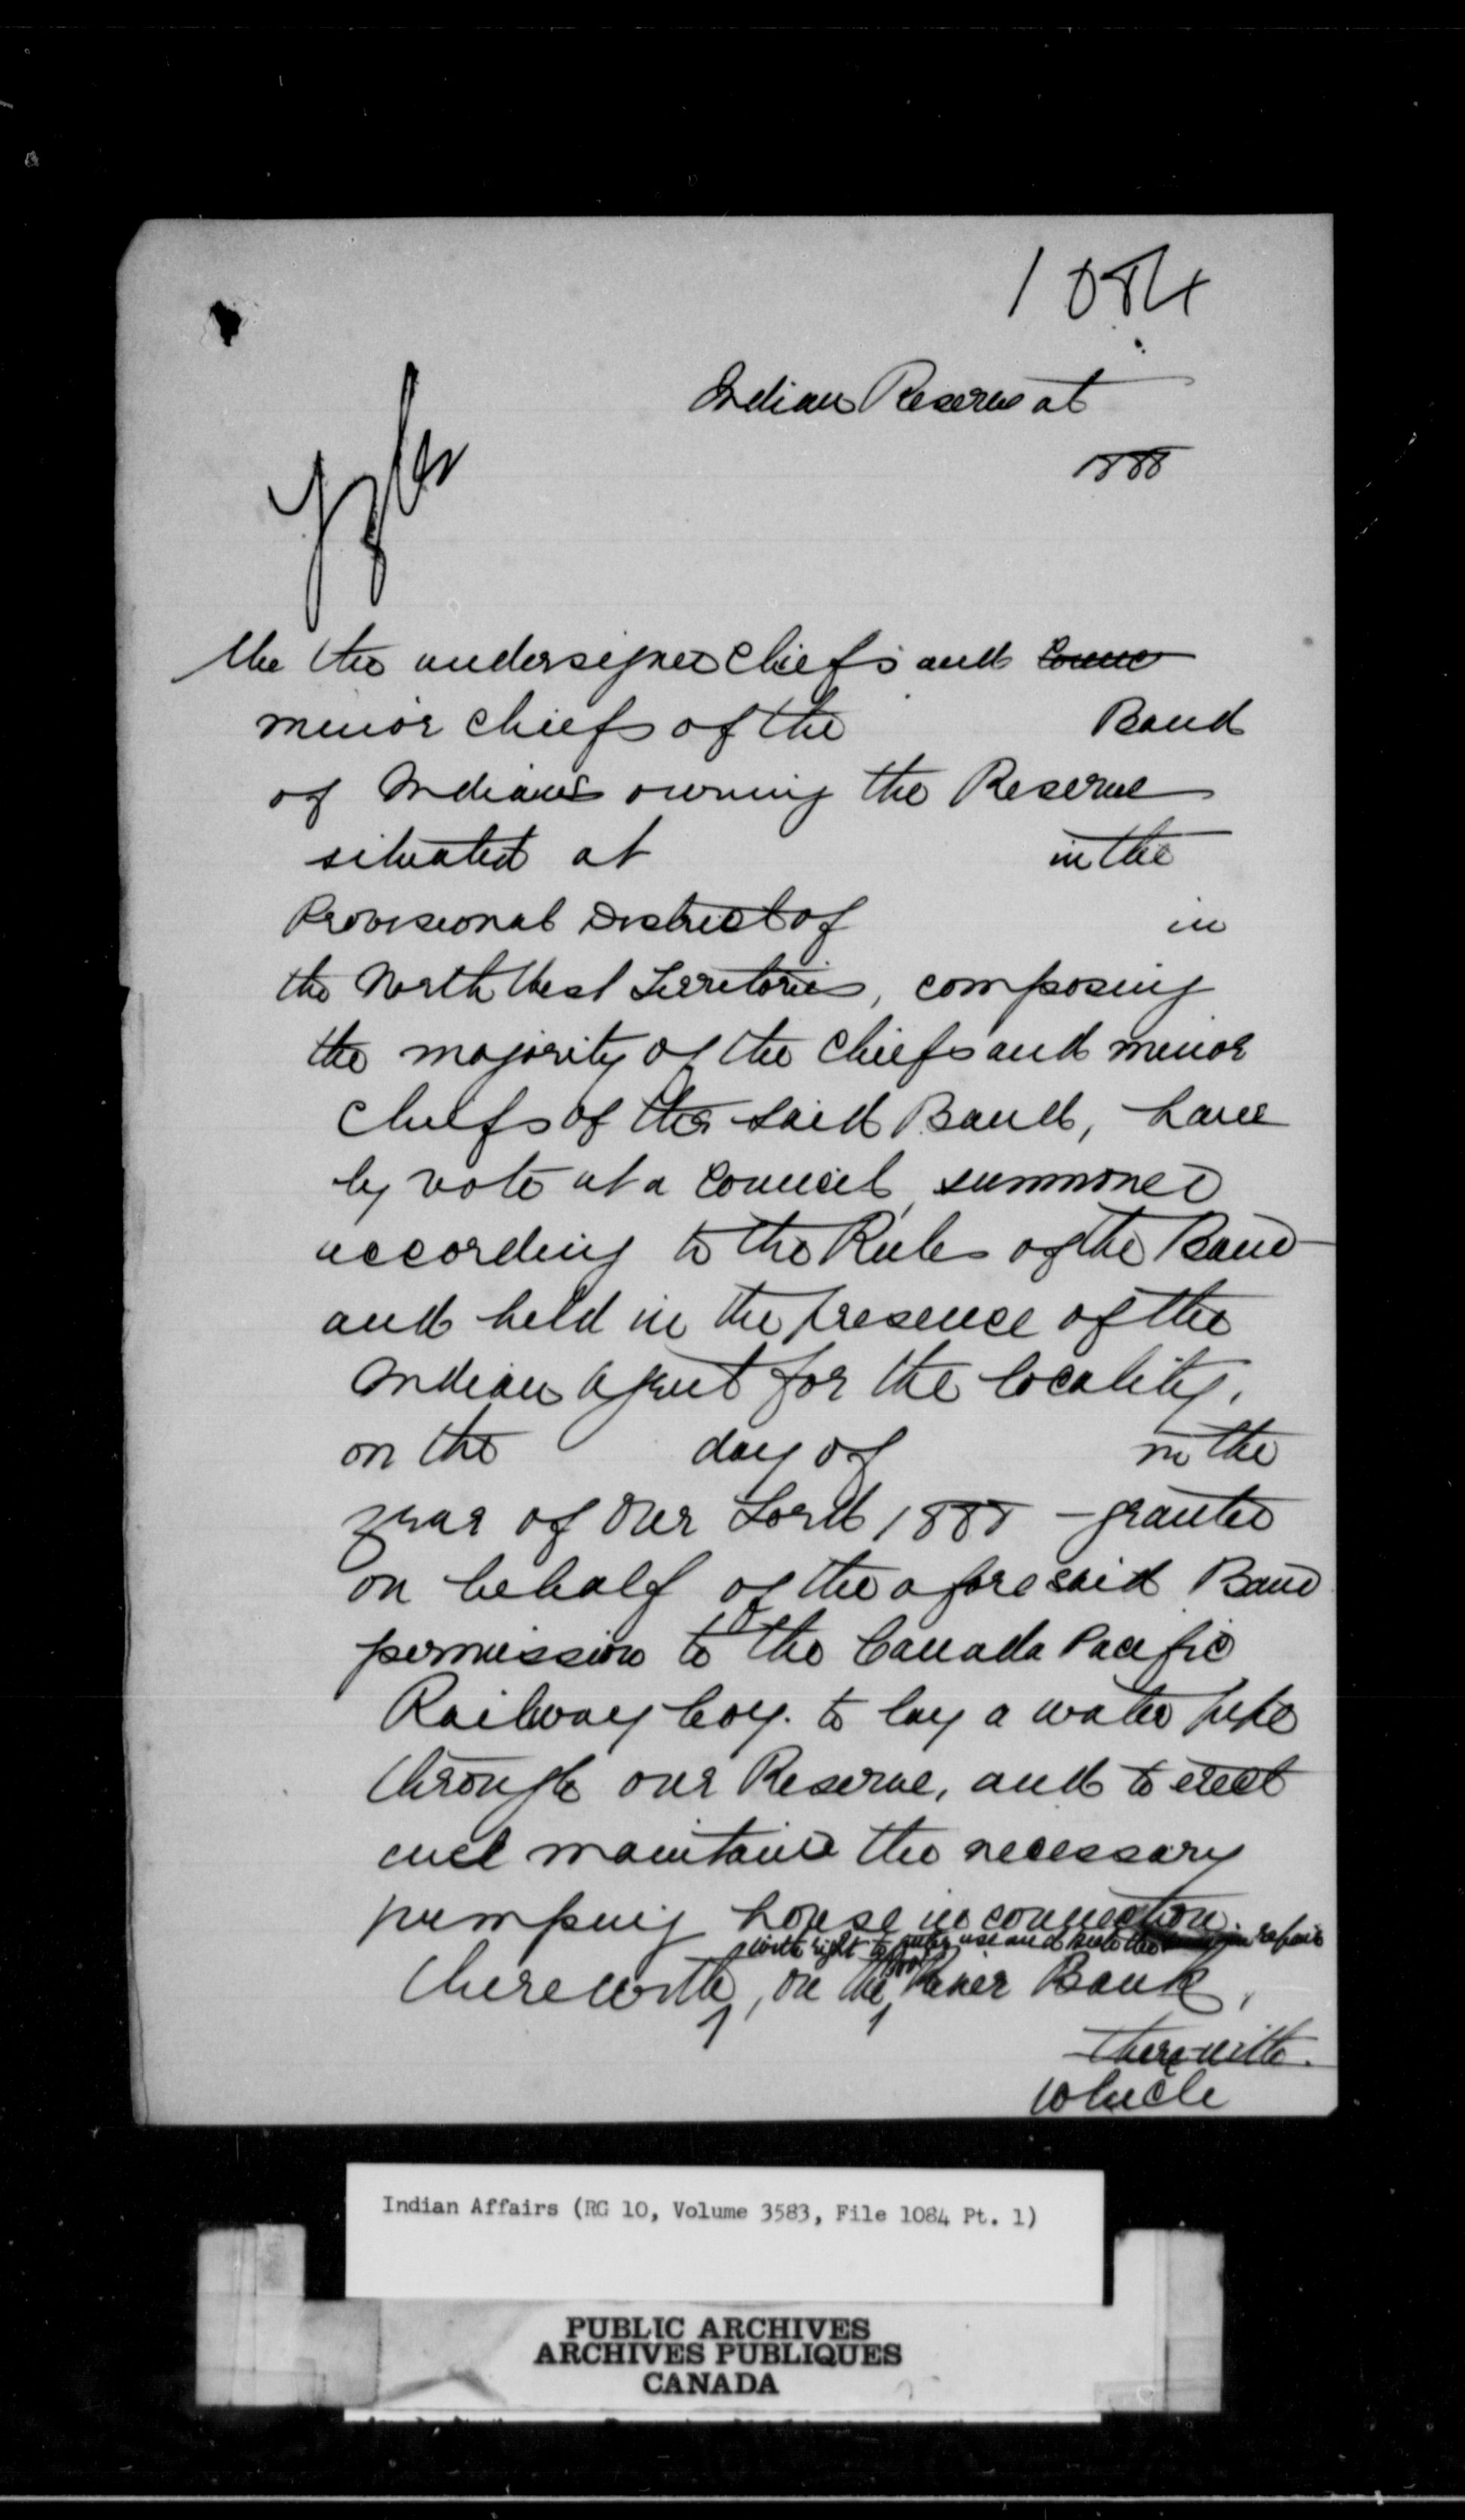 1084
Indian Reserve at
1888
We the undersigned Chiefs and Counc
minor chiefs of the Band
of Indians owning the Reserve
situated at in the
Provisional District of in
the North West Territories, composing
the majority of the Chiefs and minor
Chiefs of the said Band, have
by vote at a Council, summoned
according to the Rules of the Band
and held in the presence of the
Indian Agent for the locality,
on the day of in the
year of our Lord 1888 - granted
on behalf of the aforesaid Band
permission to the Canada Pacific
Railway Coy. to lay a water pipe
through our Reserve, and to erect
and maintain the necessary
pumping house in connection
with right to use and repair
therewith, on the River Bank,
therewith.
which
Indian Affairs (RG 10, Volume 3583, File 1084 Pt. 1)
PUBLIC ARCHIVES
ARCHIVES PUBLIQUES
CANADA